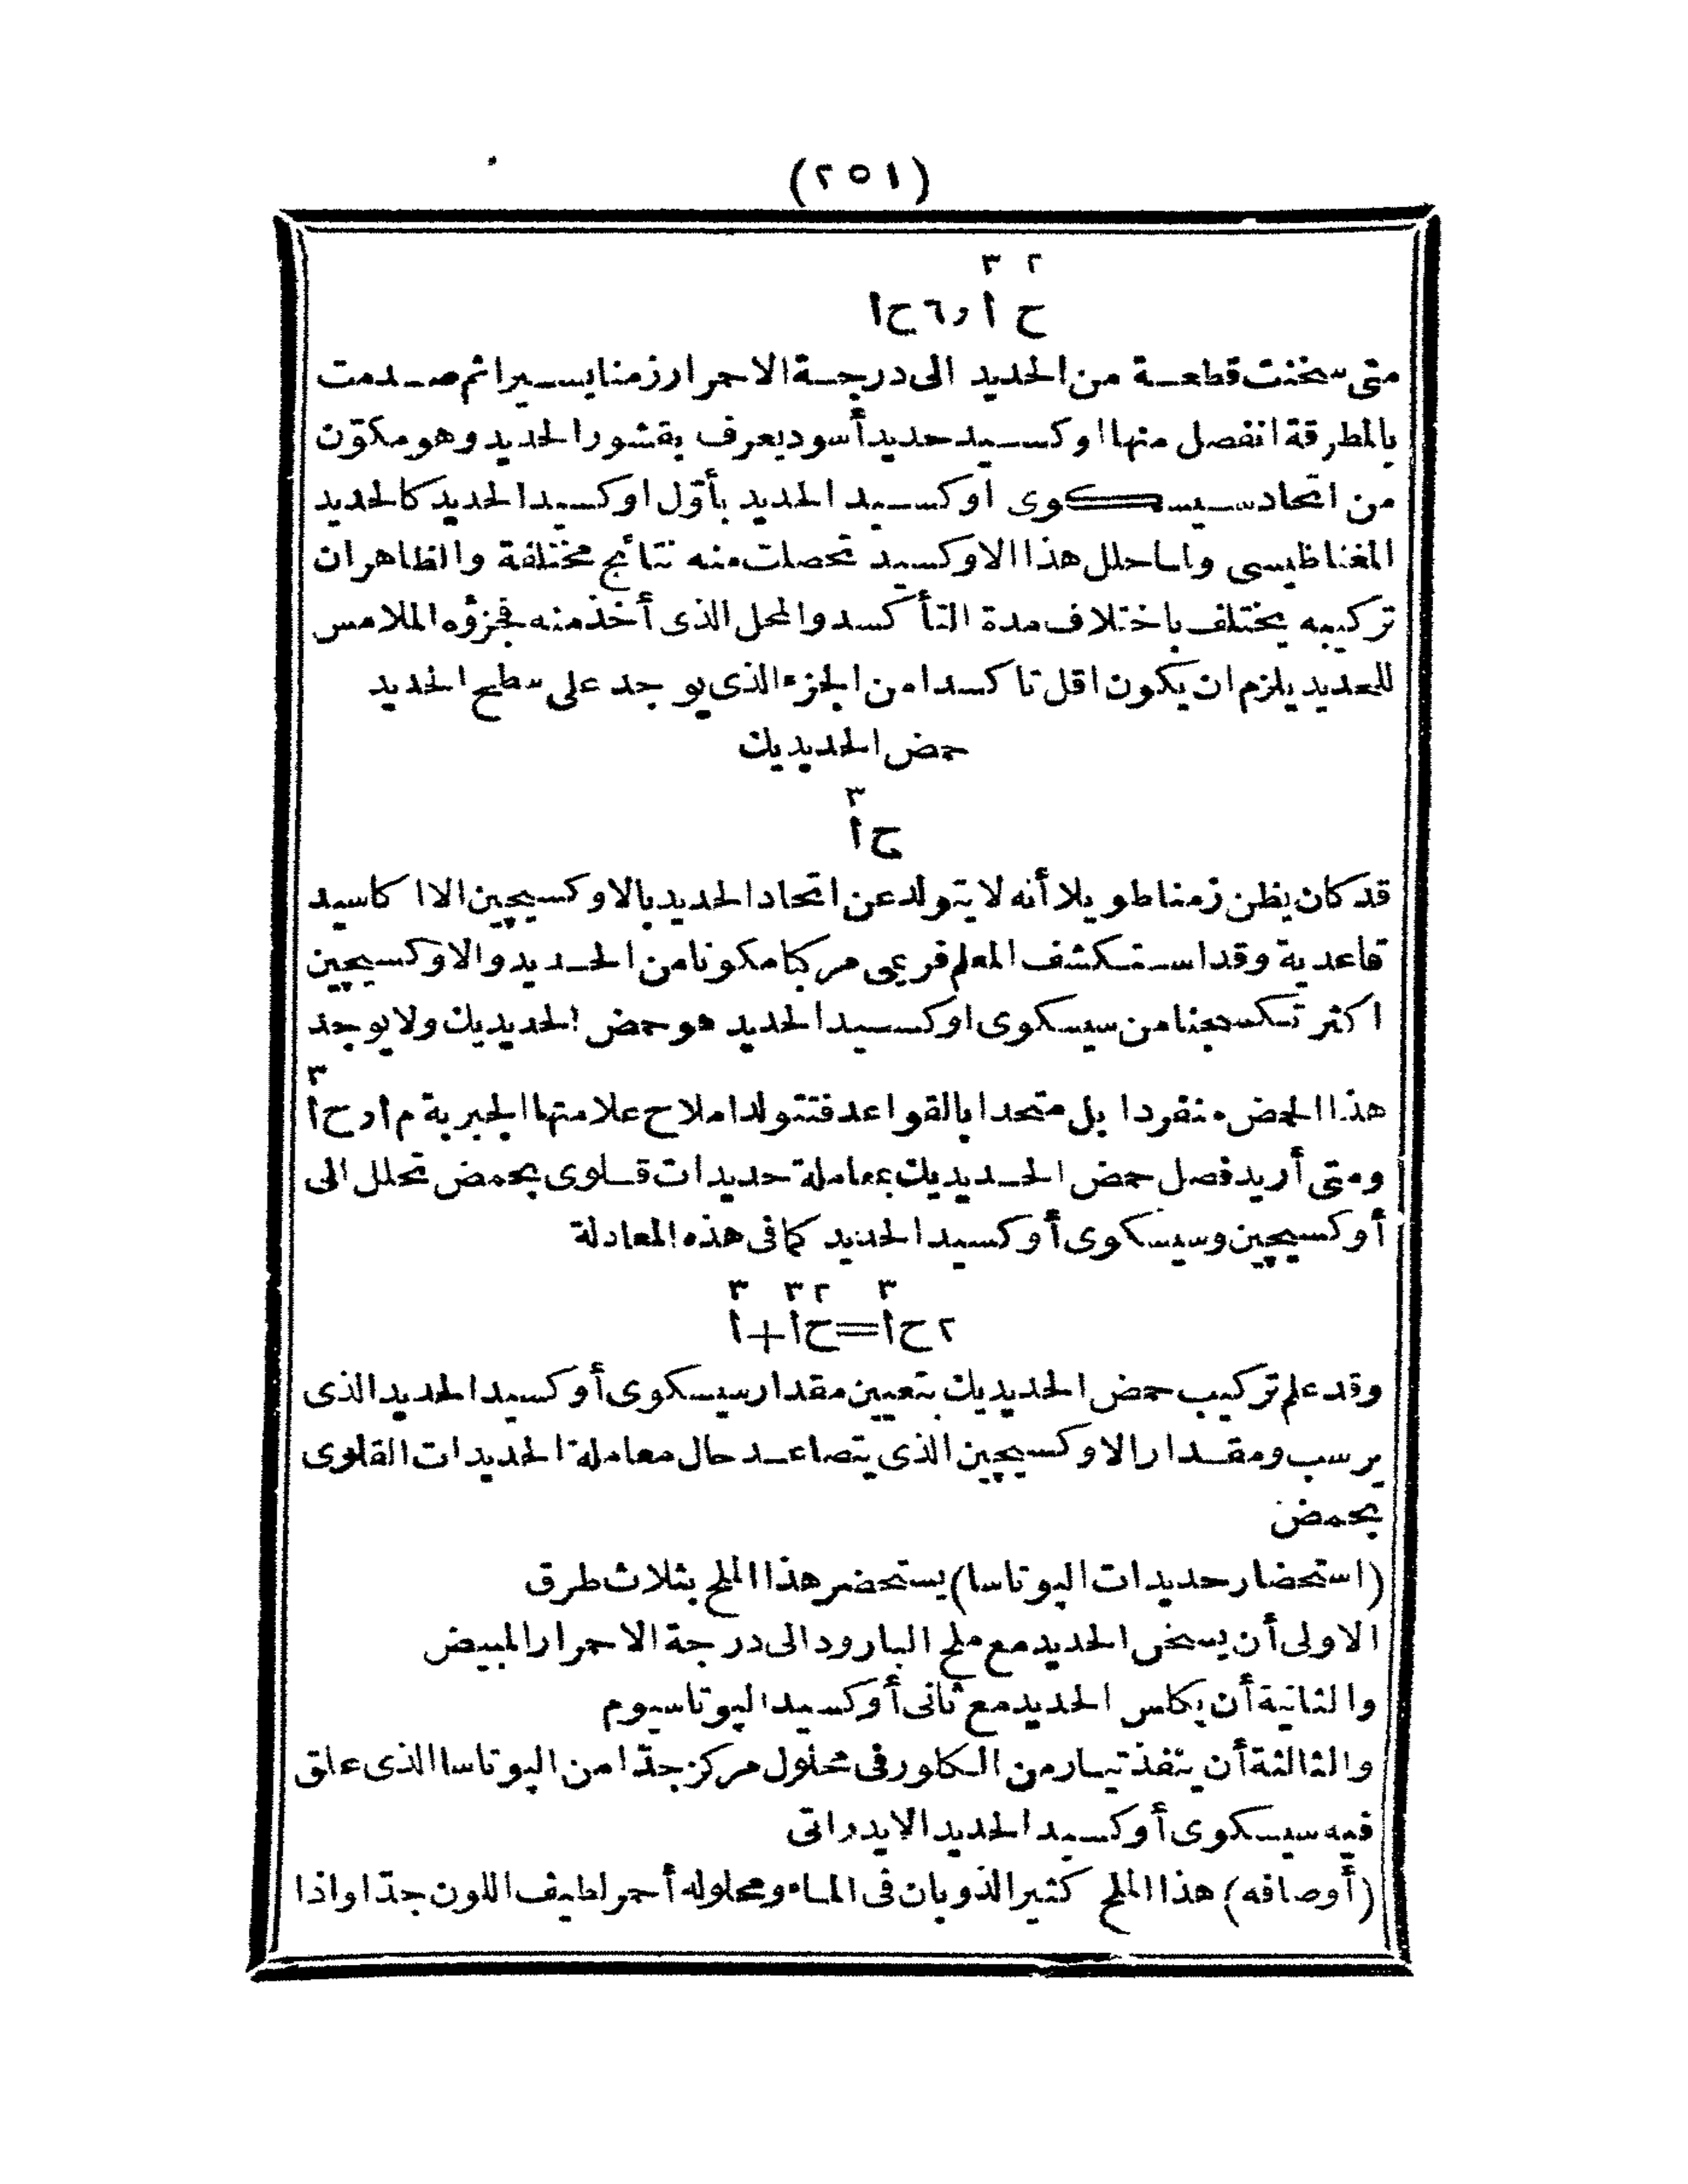 (٢٥١)
٢ ٣
ح ا و٦ح ا
متى سخنت قطعة من الحديد الى درجة الاحمرار زمنا يسيرا ثم صدمت
بالمطرقة انفصل منها اوكسيد حديد أسود يعرف بقشور الحديد وهو مكوّن
من اتحاد سيسكوى اوكسيد الحديد بأوّل اوكسيد الحديد كالحديد
المغناطيسى ولما حلل هذا الاوكسيد تحصلت منه نتائج مختلفة والظاهر ان
تركيبه يختلف باختلاف مدة التأكسد والمحل الذى أخذ منه فجزؤه الملامس
للحديد يلزم ان يكون اقل تاكسدا من الجزء الذى يوجد على سطح الحديد
حمض الحديديك
٣
ح ا
قد كان يظن زمنا طويلا أنه لا يتولد عن اتحاد الحديد بالاوكسيچين الا اكاسيد
قاعدية وقد استكشف المعلم فريمى مركبا مكونا من الحديد والاوكسيچين
اكثر تكسجنا من سيسكوى اوكسيد الحديد هو حمض الحديديك ولا يوجد
٣
هذا الحمض منفردا بل متحدا بالقواعد فتتولد املاح علامتها الجبرية م ا و ح ا
ومتى أريد فصل حمض الحديديك بمعاملة حديدات قلوى بحمض تحلل الى
أوكسيچين وسيسكوى أوكسيد الحديد كما فى هذه المعادلة
٣ ٢ ٣ ٣
٢ ح ا = ح ا + ا
وقد علم تركيب حمض الحديديك بتعيين مقدار سيسكوى أوكسيد الحديد الذى
يرسب ومقدار الاوكسيچين الذى يتصاعد حال معاملة الحديدات القلوى
بحمض
(استحضار حديدات البوتاسا) يستحضر هذا الملح بثلاث طرق
الاولى أن يسخن الحديد مع ملح البارود الى درجة الاحمرار المبيض
والثانية أن يكلس الحديد مع ثانى أوكسيد البوتاسيوم
والثالثة أن ينفذ تيار من الكلور فى محلول مركز جدّا من البوتاسا الذى علق
فيه سيسكوى أوكسيد الحديد الايدراتى
(أوصافه) هذا الملح كثير الذوبان فى الماء ومحلوله أحمر لطيف اللون جدّا واذا